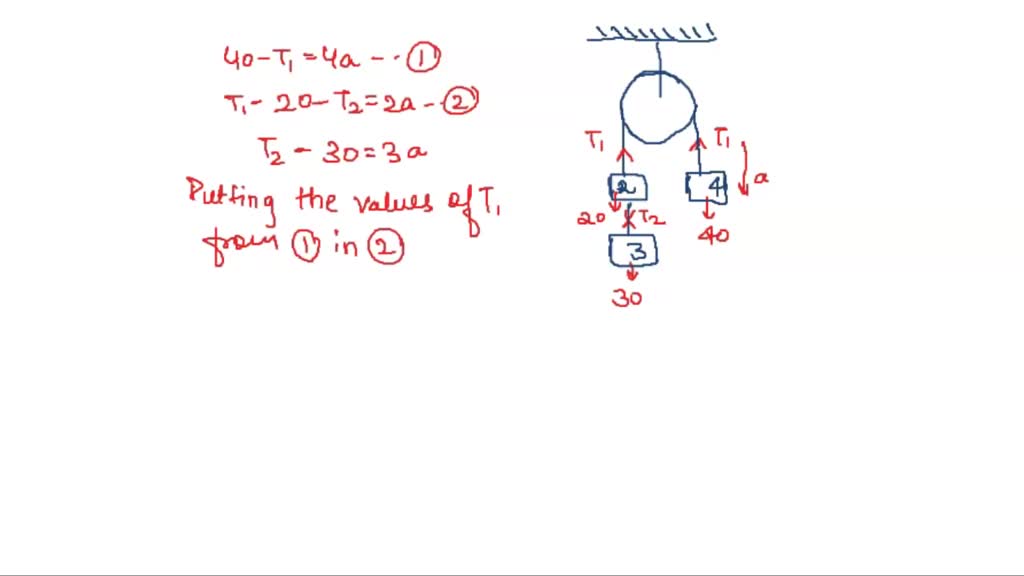 40-T₁=4a--·①
T₁-20-T₂=2a-·②
T₂-30=3a
Putting the values of T₁
from ① in ②
T₁ T₁
a
2 4
20 T₂
40
3
30